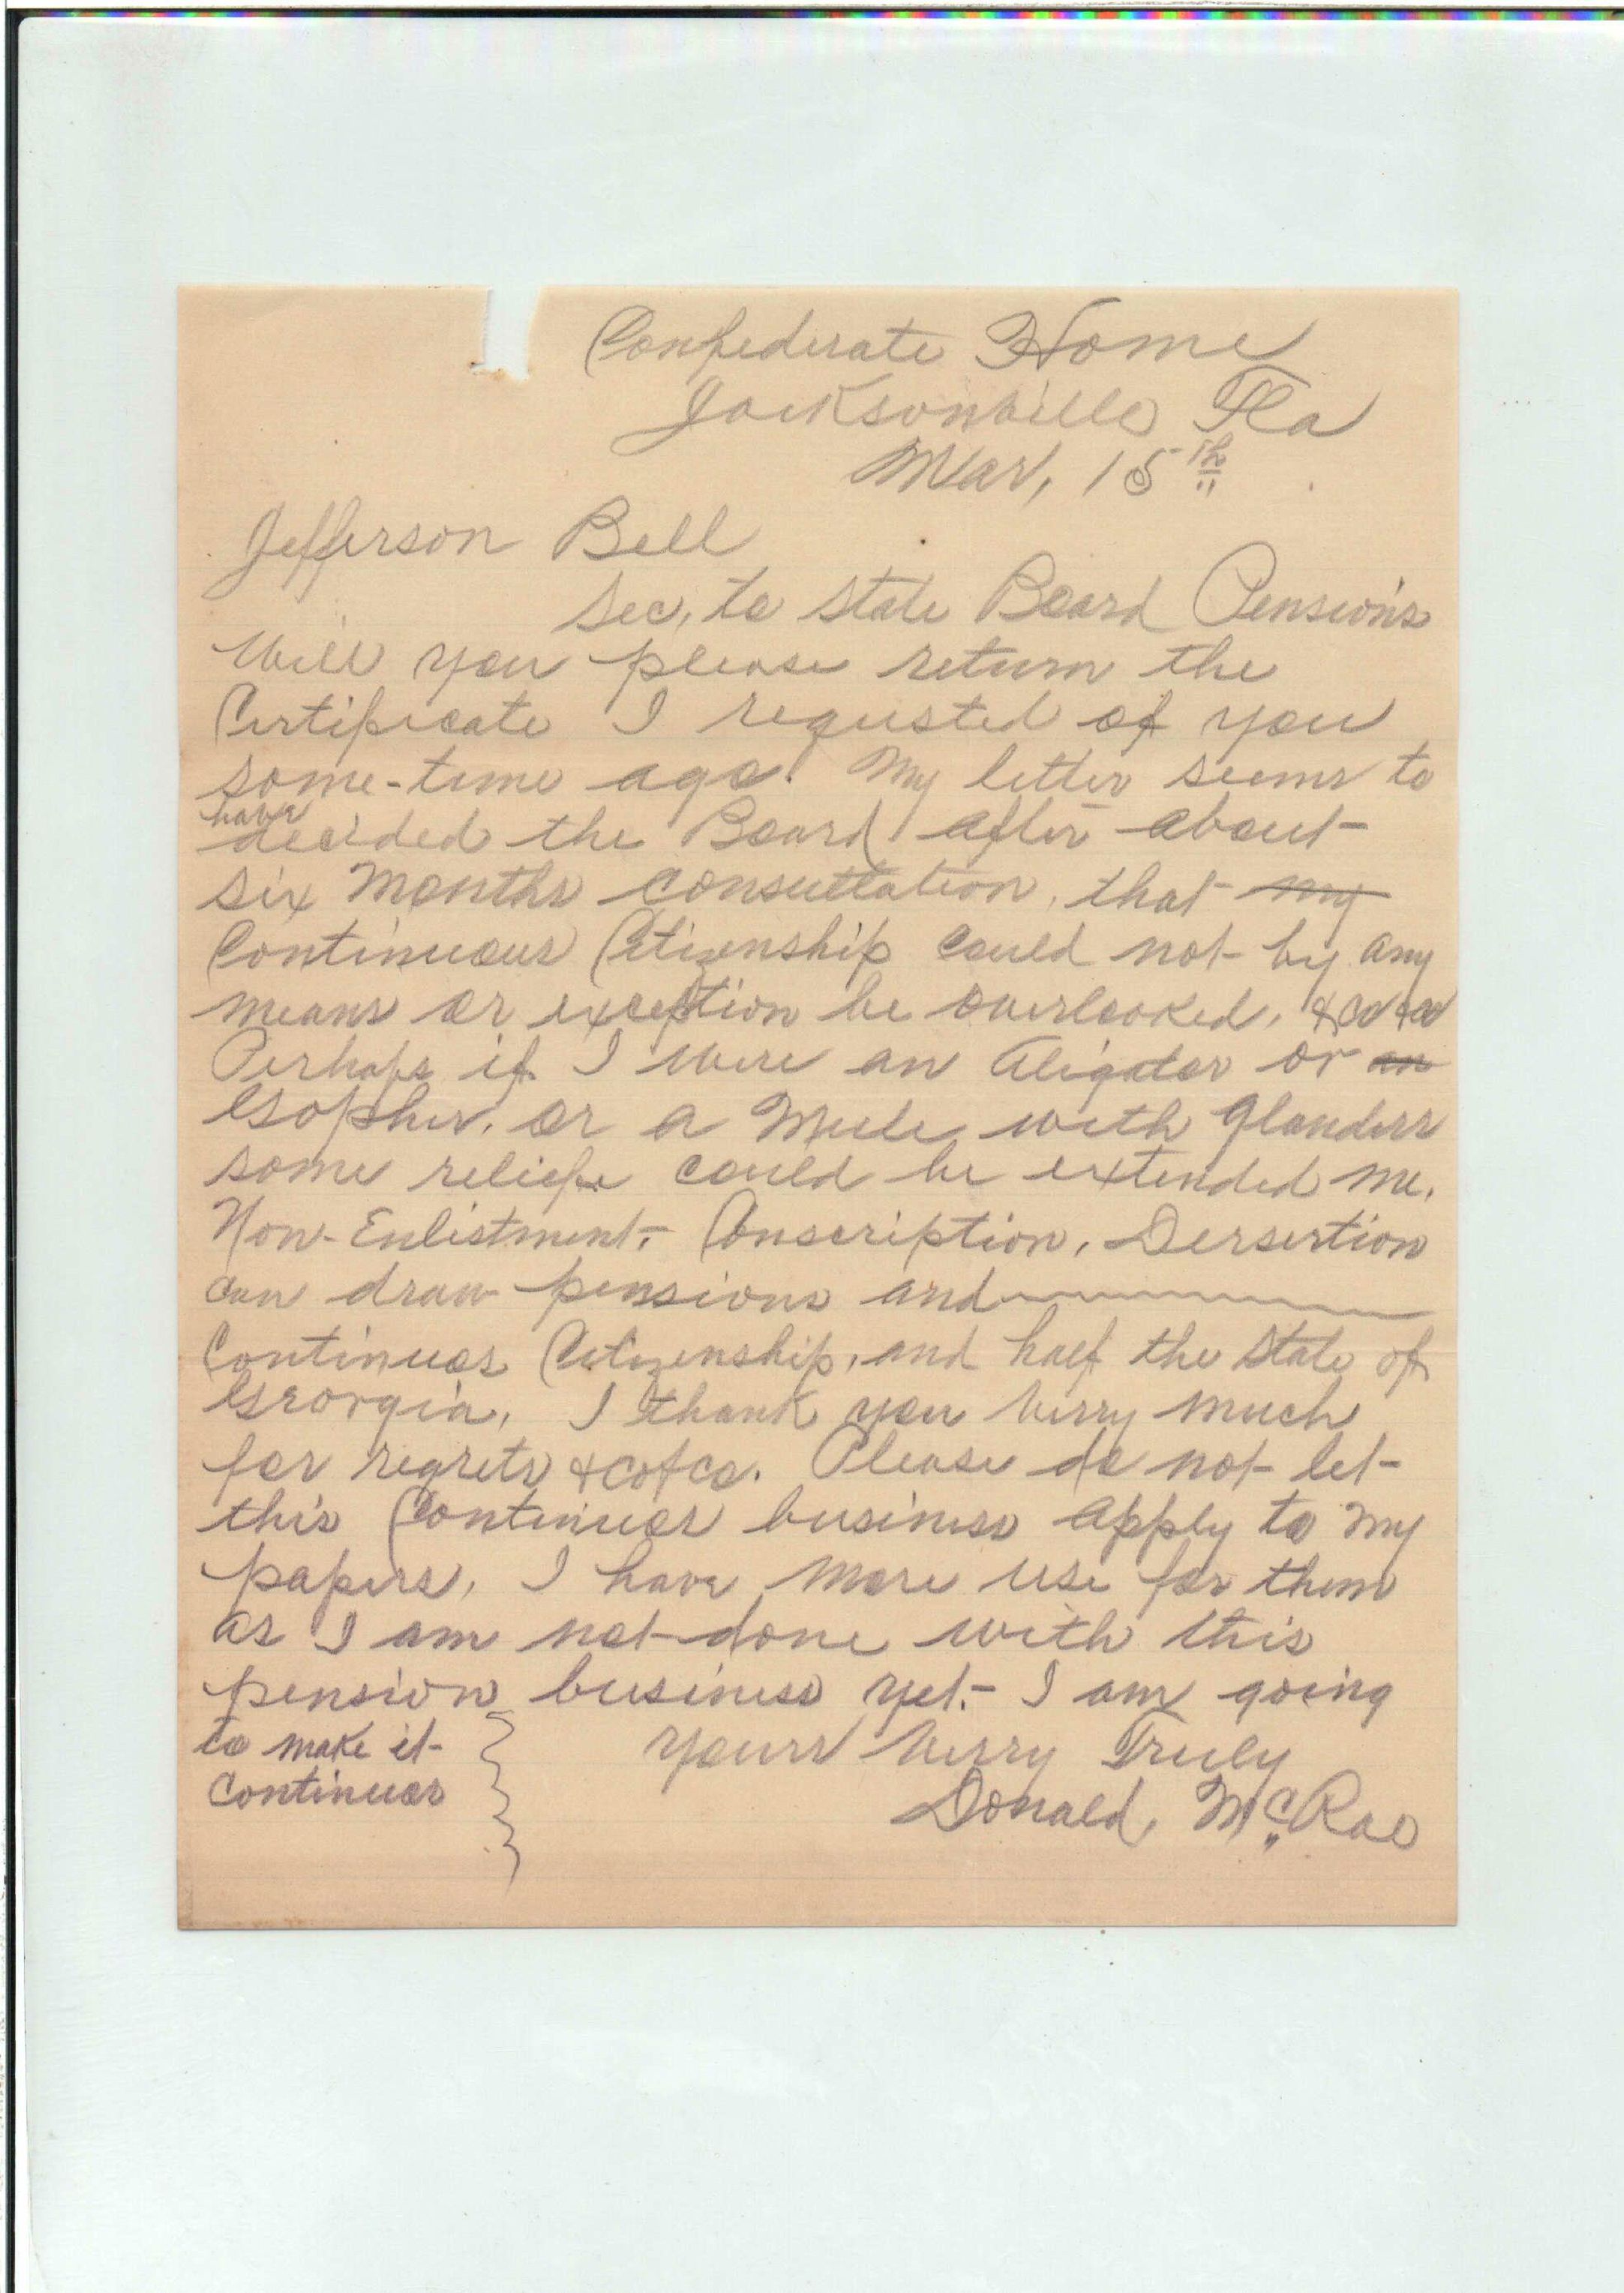 Confederate Home
Jacksonville Fla
Mar, 15th
Jefferson Bell
Sec, to State Board Pensions
Will you please return the
Certificate I requsted of you
some-time ago. My letter seems to
have
decided the Board after about
six Months consultation, that my
Continuous Citizenship could not by any
means or exception be overlooked, &co &co
Perhaps if I were an Aligator or an
Gopher, or a Mule with Glanders
some reliefe could be extended me.
Non-Enlistment, Conscription, Dersertion
can draw pensions and
Continuos Citizenship, and half the State of
Georgia, I thank you verry much
for regrets &co&co. Please do not let
this Continuos business apply to my
papers, I have more use for them
as I am not done with this
pension business yet. I am going
to make it
Continuos
Yours Verry Truly
Donald, McRae